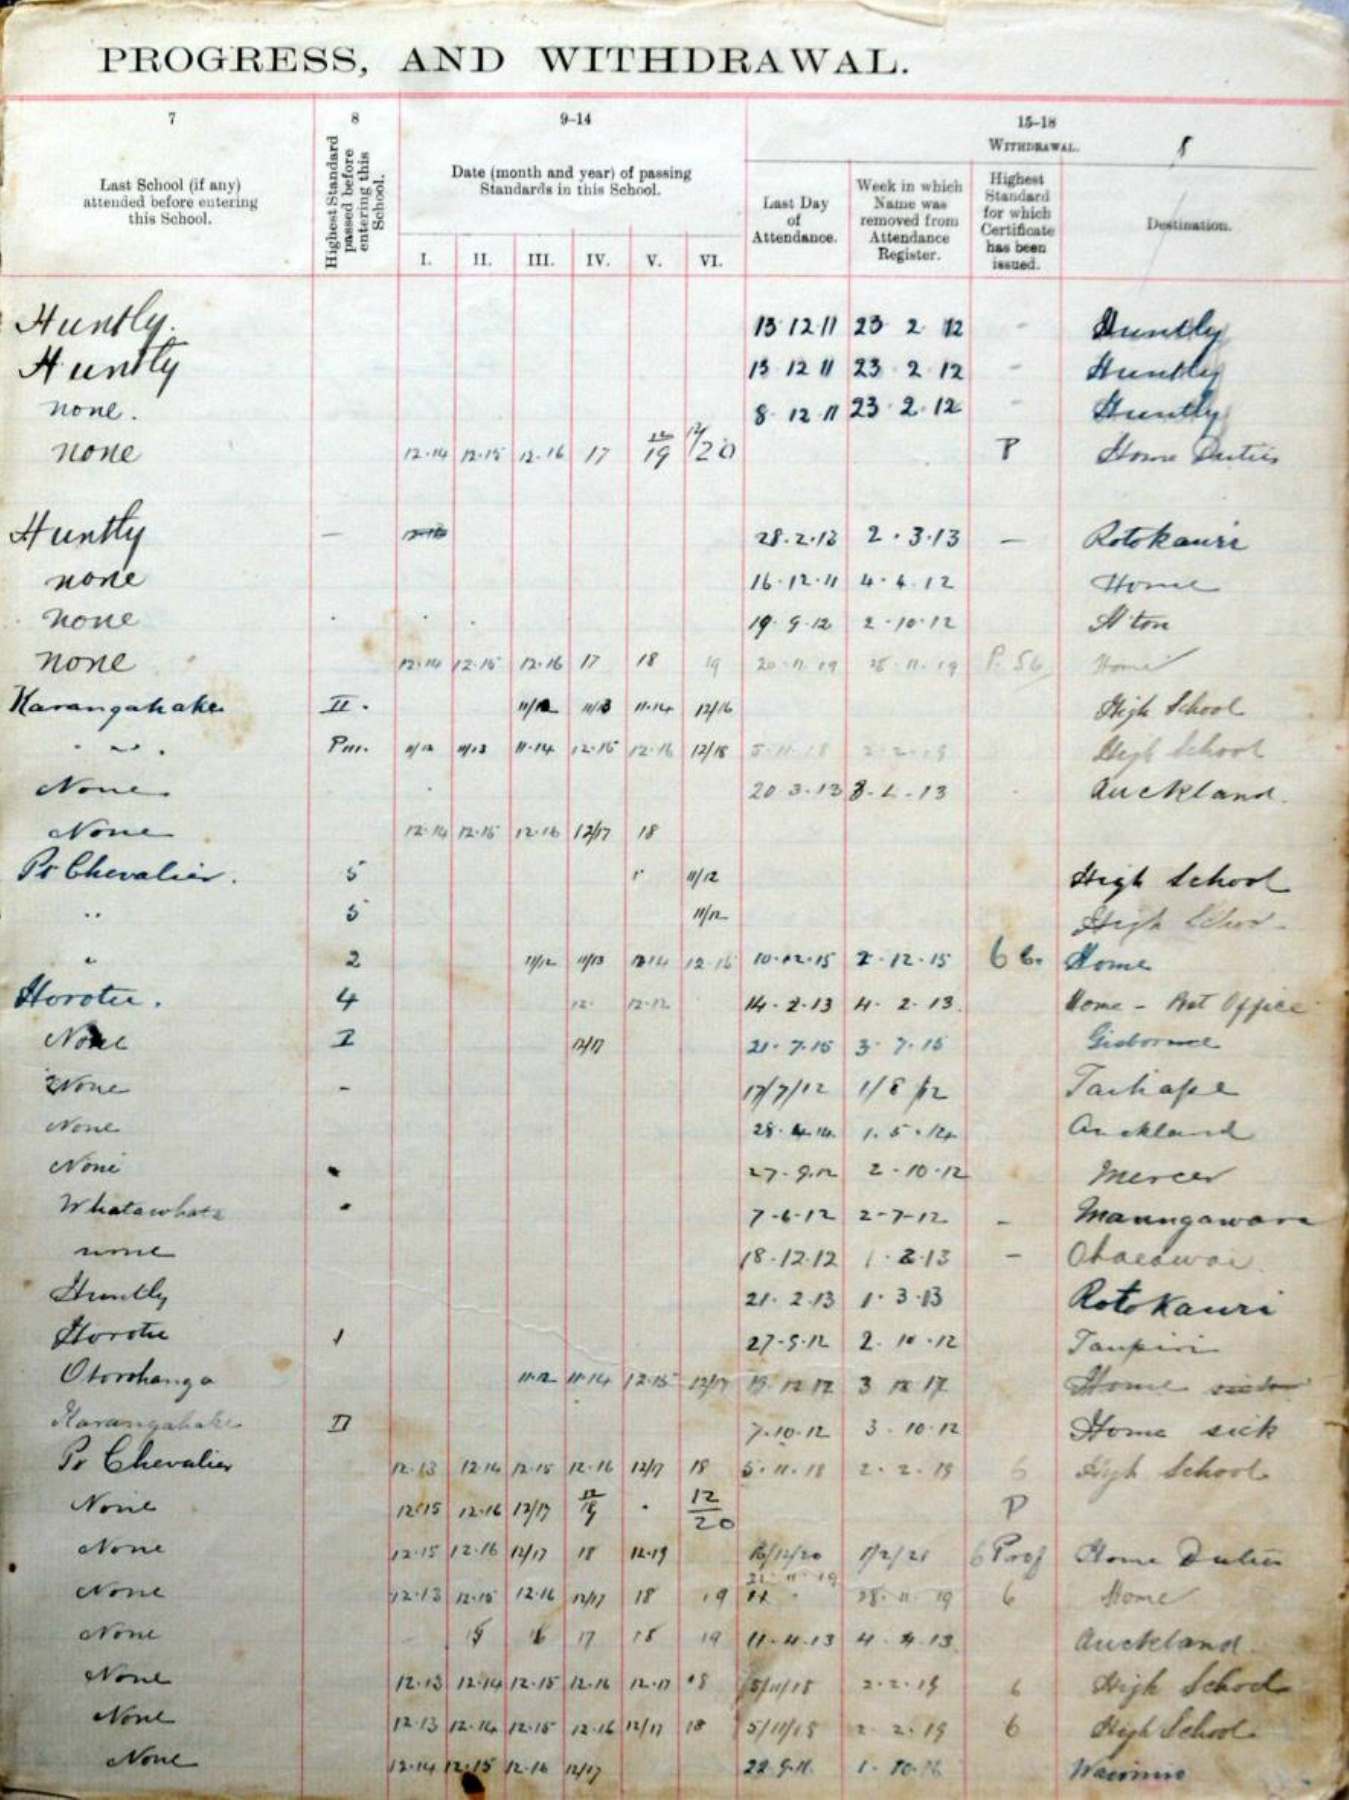 PROGRESS, AND WITHDRAWAL.
7 8 9-14 15-18
Last School (if any) attended before entering this School.
Highest Standard passed before entering this School.
Date (month and year) of passing Standards in this School.
WITHDRAWAL. 8
Last Day of Attendance.
Week in which Name was removed from Attendance Register.
Highest Standard for which Certificate has been issued.
Destination.
I. II. III. IV. V. VI.
Huntly. 13 12 11 23 2 12 - Huntly
Huntly 13 12 11 23 . 2 . 12 - Huntly
none. 8 . 12 11 23 . 2 . 12 - Huntly
none 12.14 12.15 12.16 17 12/19 12/20 P Home Duties
Huntly — 28.2.13 2 . 3.13 — Rotokauri
none 16.12.11 4.4.12 Home
none 19.9.12 2.10.12 H'ton
none 12.14 12.15 12.16 17 18 19 20.11.19 28.11.19 Home
Karangahake II. 11/12 11/13 11.14 12/16 High School
" Pm. 11/12 11/13 11.14 12.15 12.16 12/18 5.11.18 2.2.19 High School
None. 20 3.13 Auckland.
None 12.14 12.15 12.16 12/17 18
Pt Chevalier. 5 11/12 High School
" 5 11/12 High School
" 2 11/12 11/13 12.14 12.15 10.12.15 2.12.15 6 Home
Horotiu. 4 12. 12.12 14.2.13 4.2.13. Home - Post Office
None I 12/17 21.7.15 3.7.15 Gisborne
None - 17/7/12 1/8/12 Taihape
None 28.4.14. 1.5.14 Auckland
None 27.9.12 2-10-12 Mercer
Whatawhata 7-6-12 2-7-12 - Maungawara
none 18.12.12 1.2.13 - Ohaeawai
Huntly 21.2.13 1.3.13 Rotokauri
Horotiu 1 27.9.12 2.10.12 Taupiri
Otorohanga 11.12 11.14 12.15 12/17 19 12 17 3 12 17 Home
Karangahake II 7.10.12 3.10.12 Home sick
Pt Chevalier 12.13 12.14 12.15 12.16 12/17 18 5.11.18 2.2.19 6 High School
None 12.15 12.16 12/17 12/19 . 12/20 P
None 12.15 12.16 12/17 18 12.19 16/12/20 1/2/21 6 Prof Home Duties
None 12.13 12.15 12.16 12/17 18 19 21.11.19 28.11.19 6 Home
None 17 18 19 11.4.13 4.4.13 Auckland.
None 12.13 12.14 12.15 12.16 12.17 18 5/11/18 2.2.19 6 High School
None 12.13 12.14 12.15 12.16 12/17 18 5/11/18 2.2.19 6 High School
None 12.14 12.15 12.16 12/17